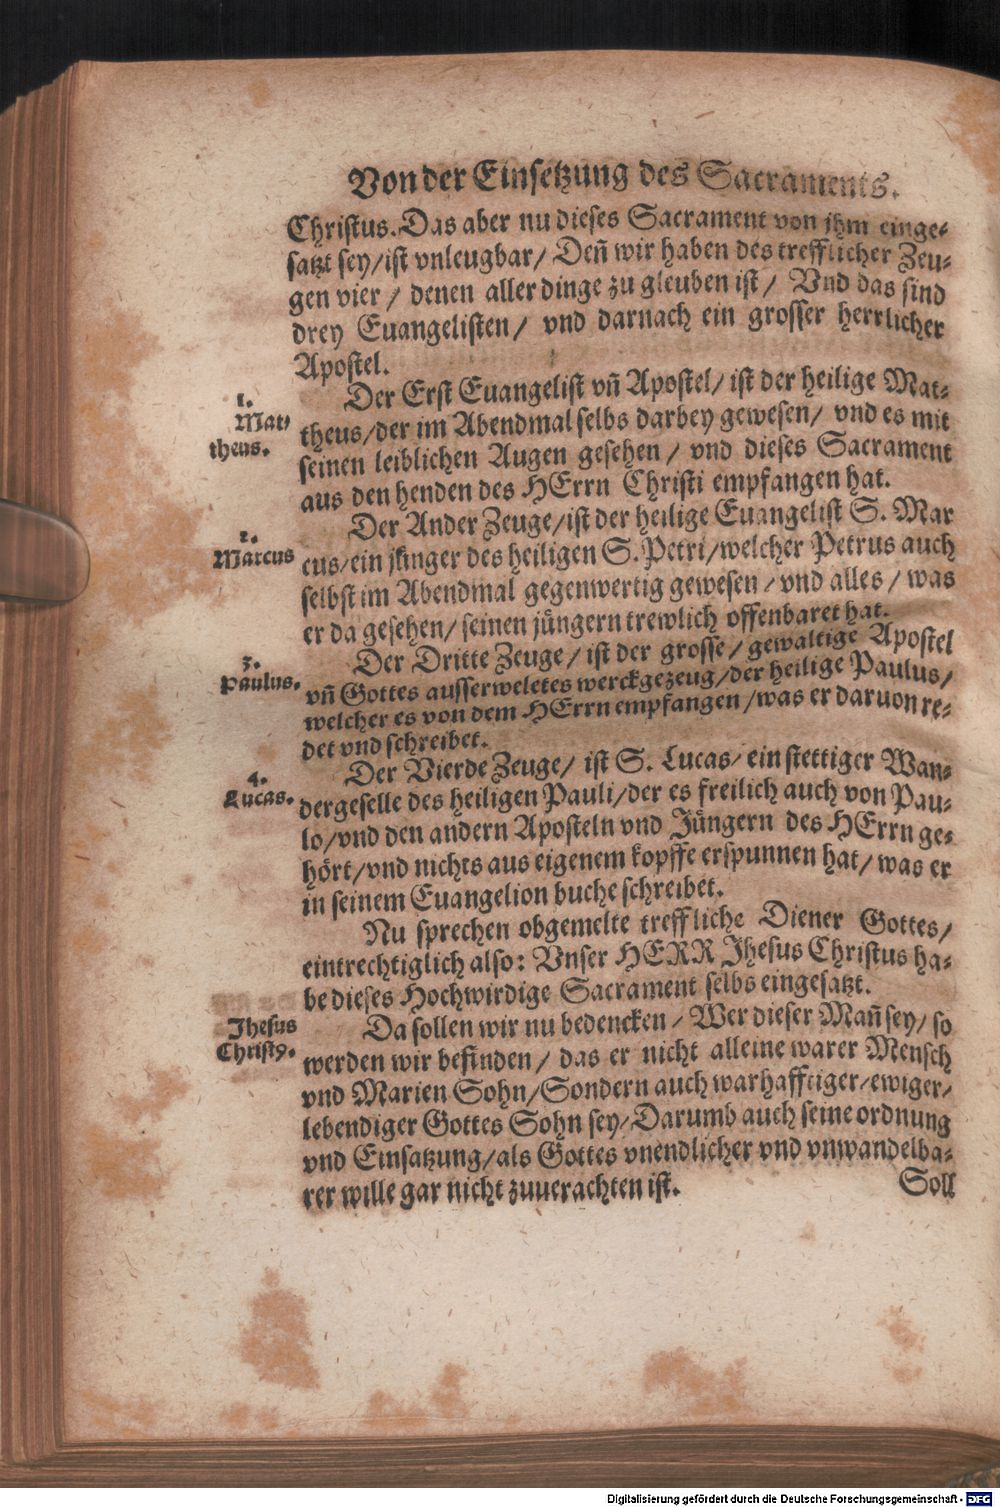 Von der Einsetzung des Sacraments.
Christus. Das aber nu dieses Sacrament von jhm einge-
satzt sey/ ist vnleugbar/ Deñ wir haben des trefflicher Zeu-
gen vier/ denen aller dinge zu gleuben ist/ Vnd das sind
drey Euangelisten/ vnd darnach ein grosser herrlicher
Apostel.
1.
Mat-
theus.
Der Erst Euangelist vñ Apostel/ ist der heilige Mat-
theus/ der im Abendmal selbs darbey gewesen/ vnd es mit
seinen leiblichen Augen gesehen/ vnd dieses Sacrament
aus den henden des HErrn Christi empfangen hat.
2.
Marcus
Der Ander Zeuge/ ist der heilige Euangelist S. Mar
cus/ ein jünger des heiligen S. Petri/ welcher Petrus auch
selbst im Abendmal gegenwertig gewesen/ vnd alles/ was
er da gesehen/ seinen jüngern trewlich offenbaret hat.
3.
Paulus.
Der Dritte Zeuge/ ist der grosse/ gewaltige Apostel
vñ Gottes ausserweletes werckgezeug/ der heilige Paulus/
welcher es von dem HErrn empfangen/ was er daruon re-
det vnd schreibet.
4.
Lucas.
Der Vierde Zeuge/ ist S. Lucas/ ein stettiger Wan-
dergeselle des heiligen Pauli/ der es freilich auch von Pau-
lo/ vnd den andern Aposteln vnd Jüngern des HErrn ge-
hört/ vnd nichts aus eigenem kopffe erspunnen hat/ was er
in seinem Euangelion buche schreibet.
Nu sprechen obgemelte treffliche Diener Gottes/
eintrechtiglich also: Vnser HERR Jhesus Christus ha-
be dieses Hochwirdige Sacrament selbs eingesatzt.
Jhesus
Christꝰ.
Da sollen wir nu bedencken/ Wer dieser Mañ sey/ so
werden wir befinden/ das er nicht alleine warer Mensch
vnd Marien Sohn/ Sondern auch warhafftiger/ ewiger/
lebendiger Gottes Sohn sey/ Darumb auch seine ordnung
vnd Einsatzung/ als Gottes vnendlicher vnd vnwandelba-
rer wille gar nicht zuuerachten ist.
Soll
Digitalisierung gefördert durch die Deutsche Forschungsgemeinschaft - DFG